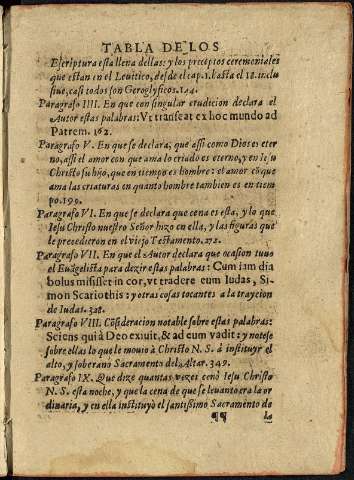 TABLA DE LOS
Escriptura esta llena dellas: y los preceptos ceremoniales
que estan en el Leuitico, desde el cap. 1. hasta el 18. inclu
siue, casi todos son Geroglyficos. 144.
Paragrafo IIII. En que con singular erudicion declara el
Autor estas palabras: Vt transeat ex hoc mundo ad
Patrem. 162.
Paragrafo V. En que se declara, que assi como Dios es eter
no, assi el amor con que ama lo criado es eterno, y en Iesu
Christo su hijo, que en tiempo es hombre: el amor cõ que
ama las criaturas en quanto hombre tambien es en tiem
po. 199.
Paragrafo VI. En que se declara que cena es esta, y lo que
Iesu Christo nuestro Señor hizo en ella, y las figuras que
le precedieron en el viejo Testamento. 272.
Paragrafo VII. En que el Autor declara que ocasion tuuo
el Euãgelista para dezir estas palabras: Cum iam dia
bolus misisset in cor, vt traderet eum Iudas, Si-
mon Scariothis: y otras cosas tocantes a la traycion
de Iudas. 328.
Paragrafo VIII. Cõsideracion notable sobre estas palabras:
Sciens quià Deo exiuit, & ad eum vadit: y notese
sobre ellas lo que le mouio à Christo N. S. à instituyr el
alto, y soberano Sacramento del Altar. 349.
Paragrafo IX. Que dize quantas vezes cenò Iesu Christo
N. S. esta noche, y que la cena de que se leuanto era la or
dinaria, y en ella instituyò el santissimo Sacramento de
¶¶ la